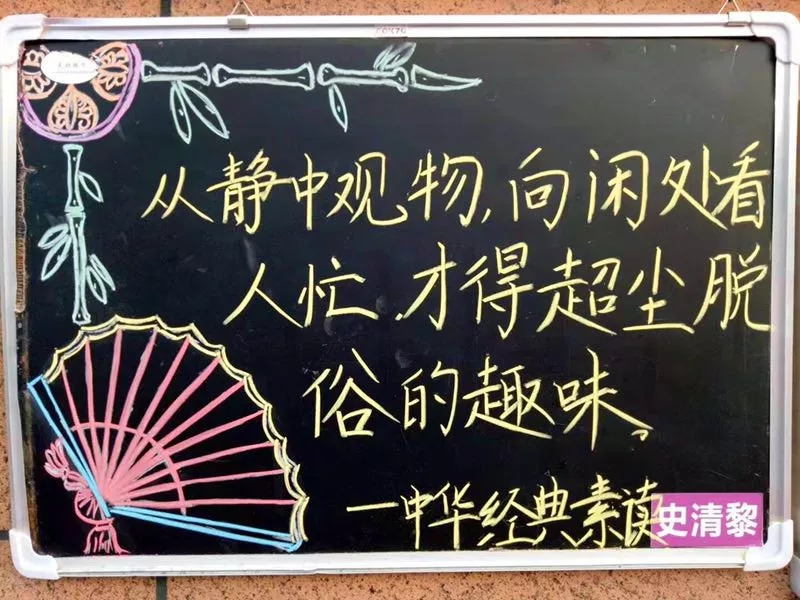 从静中观物,向闲处看
人忙,才得超尘脱
俗的趣味。
一中华经典素读
史清黎